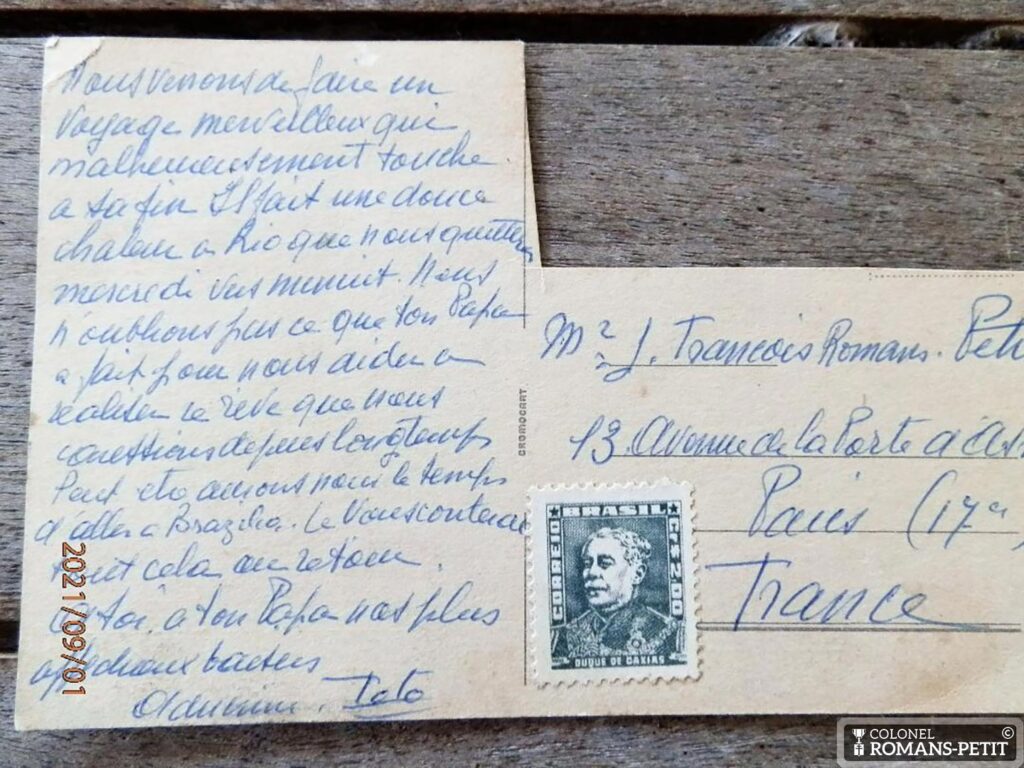 Nous venons de faire un
voyage merveilleux qui
malheureusement touche
a sa fin Il fait une douce
chaleur a Rio que nous quitterons
mercredi vers minuit. Nous
n'oublions pas ce que ton Papa
a fait pour nous aider a
realiser ce rêve que nous
caressions depuis longtemps
Peut etre aurons nous le temps
d'aller a Brazilia. Je vous conterai
tout cela au retour.
a toi, a ton Papa nos plus
affectueux baisers
Toto
Mr J. Francois Romans-Petit
13. Avenue de la Porte d'As
Paris (17e
France
CROMOCART
BRASIL
CORREIO
CR$ 2,00
DUQUE DE CAXIAS
2021/09/01
COLONEL ©
ROMANS-PETIT